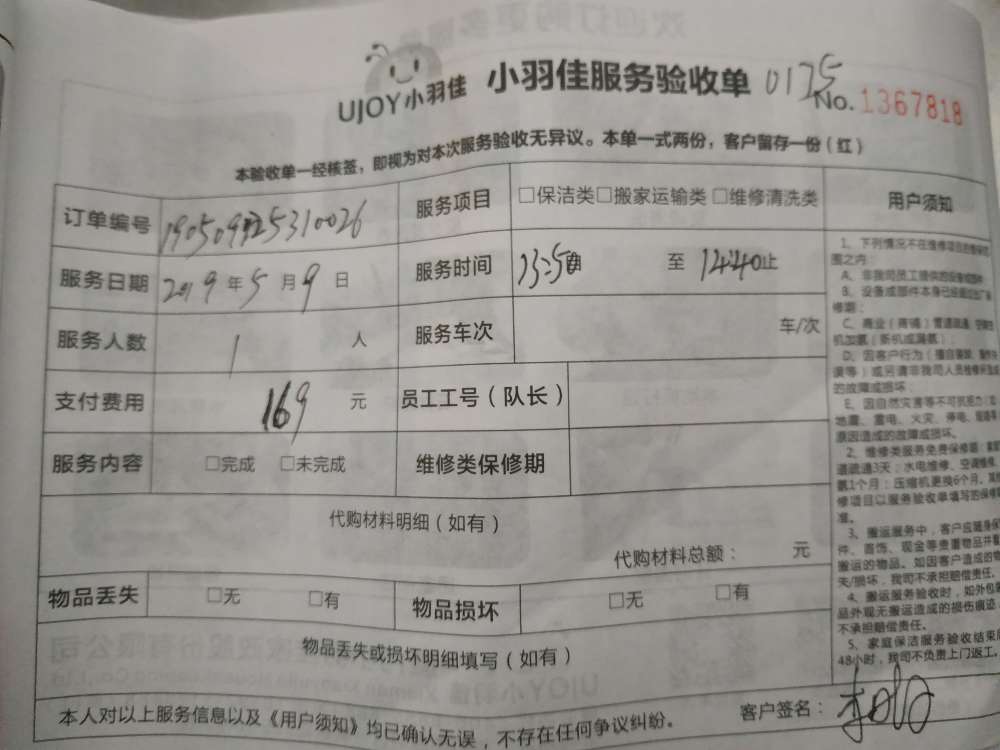 UJOY小羽佳 小羽佳服务验收单 0175 No. 1367818
本验收单一经核签，即视为对本次服务验收无异议。本单一式两份，客户留存一份（红）
订单编号 服务项目 □保洁类□搬家运输类□维修清洗类 用户须知
服务日期 2019年5月9日 服务时间 13:50 至 1440止
服务人数 1 人 服务车次 车/次
支付费用 169 元 员工工号（队长）
服务内容 □完成 □未完成 维修类保修期
代购材料明细（如有）
代购材料总额： 元
物品丢失 □无 □有 物品损坏 □无 □有
物品丢失或损坏明细填写（如有）
本人对以上服务信息以及《用户须知》均已确认无误，不存在任何争议纠纷。 客户签名：
1、下列情况不在维修项目的
围之内：
A、非我司员工提供的
B、设备或部件本身已经
修期；
C、商业（商铺）管道疏通、
机加氨（新机或漏氨）；
D、因客户行为（擅自
误等）或另请非我司人员
的故障或损坏；
E、因自然灾害等不可抗
地震、雷电、火灾、停电、
原因造成的故障或损坏。
2、维修类服务免费保修期：
道疏通3天；水电维修、空调维修、
氨1个月；压缩机更换6个月。
修项目以服务验收单填写的保修
准。
3、搬运服务中，客户应随身
件、首饰、现金等贵重物品并
搬运的物品。如因客户造成的
失/损坏，我司不承担赔偿责任。
4、搬运服务验收时，如外包
品外观无搬运造成的损伤痕迹
不承担赔偿责任。
5、家庭保洁服务验收结束
48小时，我司不负责上门返工。